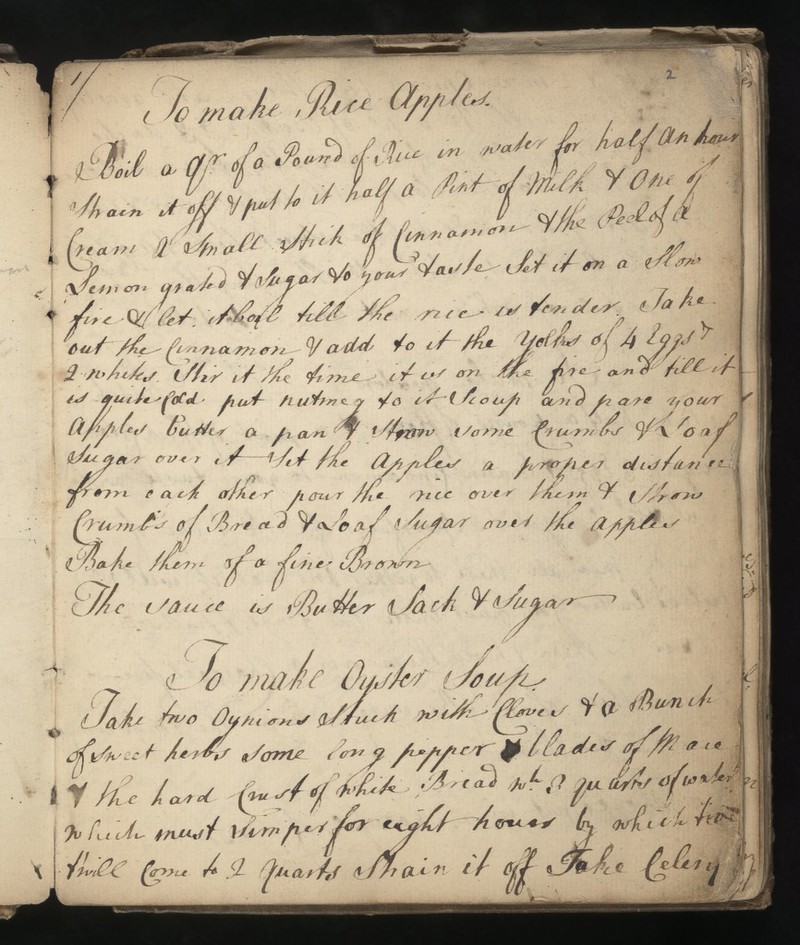 1/
2
To make Rice Apples.
Boil a Qr. of a Pound of Rice in water for half an hour
Strain it off & put to it half a Pint of Milk & One of
Cream A Small Stick of Cinnamon & the Peel of a
Lemon grated & Sugar to your taste Set it on a Slow
fire & let it boil till the rice is tender Take
out the Cinnamon & add to it the Yolks of 4 Eggs &
2 whites Stir it the time it is on the fire and till it
is quite Cold put nutmeg to it Scoup and pare your
Apples butter a pan & Strow some Crumbs & Loaf
Sugar over it Set the Apples a proper distance
from each other pour the rice over them & Strow
Crumbs of Bread & Loaf Sugar over the apples
Bake them of a fine Brown
The sauce is Butter Sack & Sugar
To make Oyster Soup
Take two Oynions Stuck with Cloves & a Bunch
of sweet herbs some long pepper blades of Mace
& the hard Crust of white Bread wth 3 quarts of water
which must Simper for eight hours by which time
t'will Come to 2 quarts Strain it off Take Celery